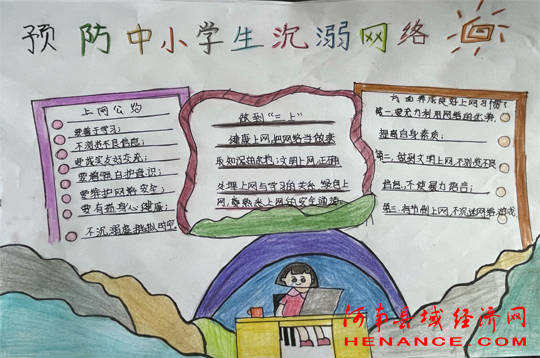 预防中小学生沉溺网络
上网公约
要善于学习；
不浏览不良信息；
要诚实友好交流；
要增强自护意识；
要维护网络安全；
要有益身心健康；
不沉溺虚拟时空。
做到“三上”
健康上网，把网络当做索
取知识的；文明上网，正确
处理上网与学习的关系，绿色上
网，上网的安全通道。
养成良好上网习惯？
第一，要充分利用网络的优势，
提高自身素质；
第二，做到文明上网，不浏览不良
信息，不使用语言；
第三，有节制上网，不沉迷网络游戏
河南县域经济网
HENANCE.COM